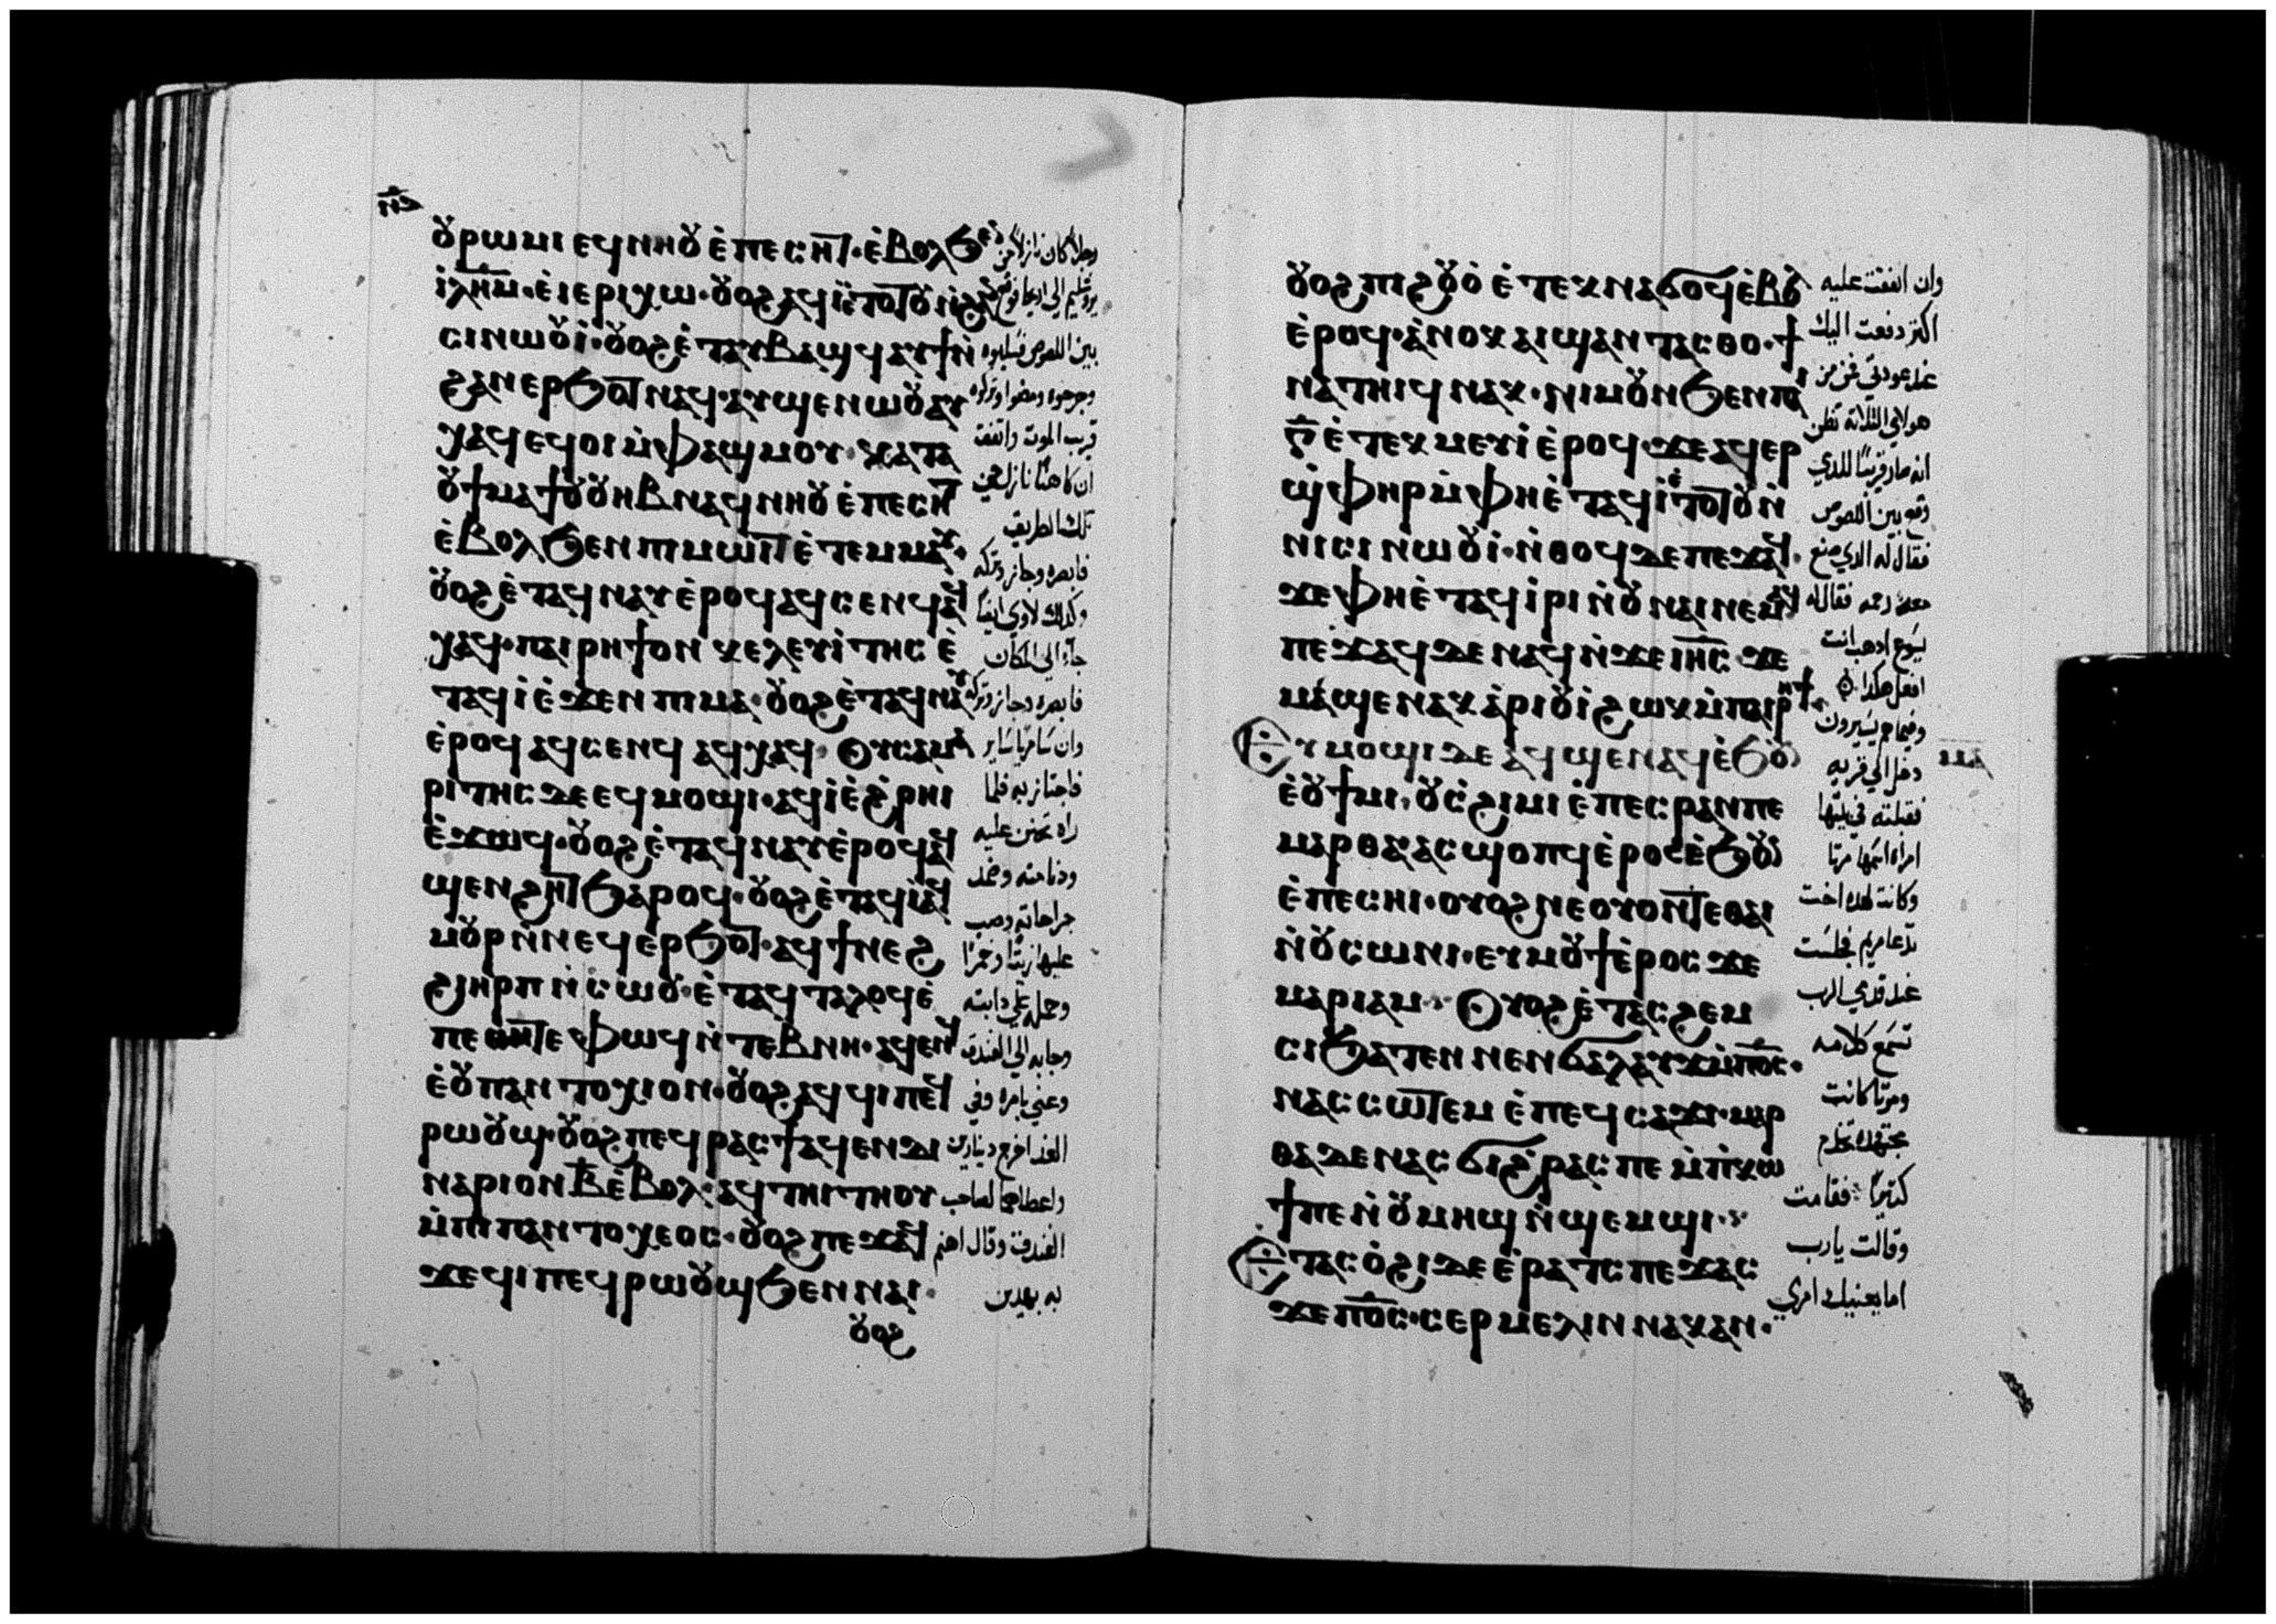 ⲟⲩⲣⲱⲙⲓ ⲉϥⲛⲏⲟⲩ ⲉ̀ⲡⲉⲥⲏⲧ· ⲉ̀ⲃⲟⲗϧⲉⲛ
ⲓⲗⲏⲙ· ⲉ̀ⲓⲉⲣⲓⲭⲱ· ⲟⲩⲟϩ ⲁϥⲓ̀ⲉ̀ⲧⲟⲧⲟⲩ ⲛ̀ϩⲁⲛ
ⲥⲓⲛⲱⲟⲩⲓ̀· ⲟⲩⲟϩ ⲉ̀ⲧⲁⲩⲃⲁϣϥ ⲁⲩϯⲛ̀
ϩⲁⲛⲉⲣϧⲟⲧ ⲛⲁϥ· ⲁⲩϣⲉⲛⲱⲟⲩ ⲁⲩ
ⲭⲁϥ ⲉϥⲟⲓ ⲙ̀ⲫⲁϣⲙⲟⲩ· ⲕⲁⲧⲁ
ⲟⲩϯⲙⲁϯ ⲟⲩⲟⲩⲏⲃ ⲛⲁϥⲛⲏⲟⲩ ⲉ̀ⲡⲉⲥⲏⲧ
ⲉ̀ⲃⲟⲗϧⲉⲛ ⲡⲓⲙⲱⲓⲧ ⲉ̀ⲧⲉⲙⲙⲁⲩ·
ⲟⲩⲟϩ ⲉ̀ⲧⲁϥⲛⲁⲩ ⲉ̀ⲣⲟϥ ⲁϥⲥⲉⲛϥ ⲁϥ
ⲭⲁϥ· ⲡⲁⲓⲣⲏϯ ⲟⲛ ⲕⲉⲗⲉⲩⲓ̀ⲧⲏⲥ ⲉ̀
ⲧⲁϥⲓ̀ ⲉ̀ϫⲉⲛ ⲡⲓⲙⲁ· ⲟⲩⲟϩ ⲉ̀ⲧⲁϥⲛⲁⲩ
ⲉ̀ⲣⲟϥ ⲁϥⲥⲉⲛϥ ⲁϥⲭⲁϥ· ⲟⲩⲥⲁⲙⲁ
ⲣⲓⲧⲏⲥ ⲇⲉ ⲉϥⲙⲟϣⲓ· ⲁϥⲓ̀ ⲉ̀ϩ̀ⲣⲏⲓ
ⲉ̀ϫⲱϥ· ⲟⲩⲟϩ ⲉ̀ⲧⲁϥⲛⲁⲩ ⲉ̀ⲣⲟϥ ⲁϥ
ϣⲉⲛϩⲏⲧ ϧⲁⲣⲟϥ· ⲟⲩⲟϩ ⲉ̀ⲧⲁϥⲓ̀ ⲁϥ
ⲙⲟⲩⲣ ⲛ̀ⲛⲉϥⲉⲣϧⲟⲧ· ⲁϥϯⲛⲉϩ
ϩⲓⲏⲣⲡ ⲛ̀ⲥⲱⲟⲩ· ⲉ̀ⲧⲁϥⲧⲁⲗⲟϥ ⲉ̀
ⲡⲉⲑⲏⲧⲉ ⲫⲱϥ ⲛ̀ⲧⲉⲃⲛⲏ· ⲁϥⲉⲛϥ
ⲉ̀ⲟⲩⲡⲁⲛⲧⲟⲭⲓⲟⲛ· ⲟⲩⲟϩ ⲁϥϥⲓⲡⲉϥ
ⲣⲱⲟⲩϣ· ⲟⲩⲟϩ ⲡⲉϥⲣⲁⲥϯ ⲁϥⲉⲛ ⲇⲓ
ⲛⲁⲣⲓⲟⲛ ⲃ̅ ⲉ̀ⲃⲟⲗ· ⲁϥⲧⲏⲓⲧⲏⲟⲩ
ⲙ̀ⲡⲓⲡⲁⲛⲧⲟⲭⲉⲟⲥ· ⲟⲩⲟϩ ⲡⲉϫⲁϥ
ϫⲉ ϥⲓ ⲡⲉϥⲣⲱⲟⲩϣ ϧⲉⲛ ⲛⲁⲓ·
ⲟⲩⲟϩ
رجلاً كان نازلاً من
يروشليم الي اريحا فوقع
بين اللصوص فسلبوه
وجرحوه ومضوا وتركوه
قريب الموت واتفق
ان كاهنًا نازل في
تلك الطريق
فابصره وجاز وتركه
وكذلك لاوي ايضًا
جآء الي المكان
فابصره وجاز وتركه
وان سامريًا ساير
فاجتاز به فلما
راه تحنن عليه
ودنا منه وضمد
جراحاته وصب
عليها زيتًا وخمرًا
وحمله علي دابته
وجا به الي الفندق
وعني بامره وفي
الغد اخرج دينارين
واعطاهما لصاحب
الفندق وقال اهتم
به بهدين
ⲟⲩⲟϩ ⲡⲓϩⲟⲩⲟ̀ ⲉ̀ⲧⲉⲕⲛⲁϭⲟϥ ⲉ̀ⲃⲟⲗ
ⲉ̀ⲣⲟϥ· ⲁ̀ⲛⲟⲕ ⲁⲓϣⲁⲛⲧⲁⲥⲑⲟ· ϯ
ⲛⲁⲧⲏⲓϥ ⲛⲁⲕ· ⲛⲓⲙ ⲟⲩⲛ ϧⲉⲛ ⲡⲁⲓ
ⲅ̅ ⲉ̀ⲧⲉⲕⲙⲉⲩⲓ̀ ⲉ̀ⲣⲟϥ· ϫⲉ ⲁϥⲉⲣ
ϣ̀ⲫⲏⲣ ⲙ̀ⲫⲏ ⲉ̀ⲧⲁϥⲓ̀ ⲉ̀ⲧⲟⲧⲟⲩ ⲛ̀
ⲛⲓⲥⲓⲛⲱⲟⲩⲓ̀· ⲛ̀ⲑⲟϥ ⲇⲉ ⲡⲉϫⲁϥ·
ϫⲉ ⲫⲏ ⲉ̀ⲧⲁϥⲓ̀ⲣⲓ ⲛ̀ⲟⲩⲛⲁⲓ ⲛⲉⲙⲁϥ
ⲡⲉϫⲁϥ ⲇⲉ ⲛⲁϥ ⲛ̀ϫⲉ ⲓⲏⲥ· ϫⲉ
ⲙⲁϣⲉⲛⲁⲕ ⲁ̀ⲣⲓⲟⲩⲓ̀ ϩⲱⲕ ⲙ̀ⲡⲁⲓⲣⲏϯ·
ⲉⲩⲙⲟϣⲓ ⲇⲉ ⲁϥϣⲉⲛⲁϥ ⲉ̀ϧⲟⲩⲛ
ⲉ̀ⲟⲩϯⲙⲓ· ⲟⲩⲥ̀ϩⲓⲙⲓ ⲉ̀ⲡⲉⲥⲣⲁⲛ ⲡⲉ
ⲙⲁⲣⲑⲁ· ⲁⲥϣⲟⲡϥ ⲉ̀ⲣⲟⲥ ⲉ̀ϧⲟⲩⲛ
ⲉ̀ⲡⲉⲥⲏⲓ· ⲟⲩⲟϩ ⲛⲉ ⲟⲩⲟⲛⲧⲉ ⲑⲁⲓ
ⲛ̀ⲟⲩⲥⲱⲛⲓ· ⲉⲩⲙⲟⲩϯ ⲉ̀ⲣⲟⲥ ϫⲉ
ⲙⲁⲣⲓⲁⲙ· ⲟⲩⲟϩ ⲉ̀ⲧⲁⲥϩⲉⲙ
ⲥⲓ ϧⲁⲧⲉⲛ ⲛⲉⲛϭⲁⲗⲁⲩϫ ⲙ̀ⲡⲟ̅ⲥ̅·
ⲛⲁⲥⲥⲱⲧⲉⲙ ⲉ̀ⲡⲉϥⲥⲁϫⲓ· ⲙⲁⲣ
ⲑⲁ ⲇⲉ ⲛⲁⲥϭⲓϩ̀ⲣⲁⲥ ⲡⲉ ⲙ̀ⲡ̀ⲕⲱ
ϯ ⲡⲉ ⲛ̀ⲟⲩⲙⲏϣ ⲛ̀ϣⲉⲙϣⲓ·
ⲉⲧⲁⲥⲟ̀ϩⲓ ⲇⲉ ⲉ̀ⲣⲁⲧⲥ ⲡⲉϫⲁⲥ
ϫⲉ ⲡⲟ̅ⲥ̅· ⲥⲉⲣⲙⲉⲗⲓⲛ ⲛⲁⲕ ⲁⲛ·
وان انفقت عليه
اكتر دفعت اليك
عند عودتي فمن من
هولاي التلاتة تظن
انه صار قريبًا للدي
وقع بين اللصوص
فقال له الدي صنع
معه رحمه فقال له
يسوع ادهب انت
افعل هكدا
وفيما هم يسيرون
دخل الي قريه
فقبلته في بيتها
امراه اسمها مرتا
وكانت لهده اخت
تدعا مريم فجلست
عند قدمي الرب
تسمع كلامه
ومرتا كانت
مجتهده تخدم
كتيرًا فقامت
وقالت يارب
اما يعنيك امري